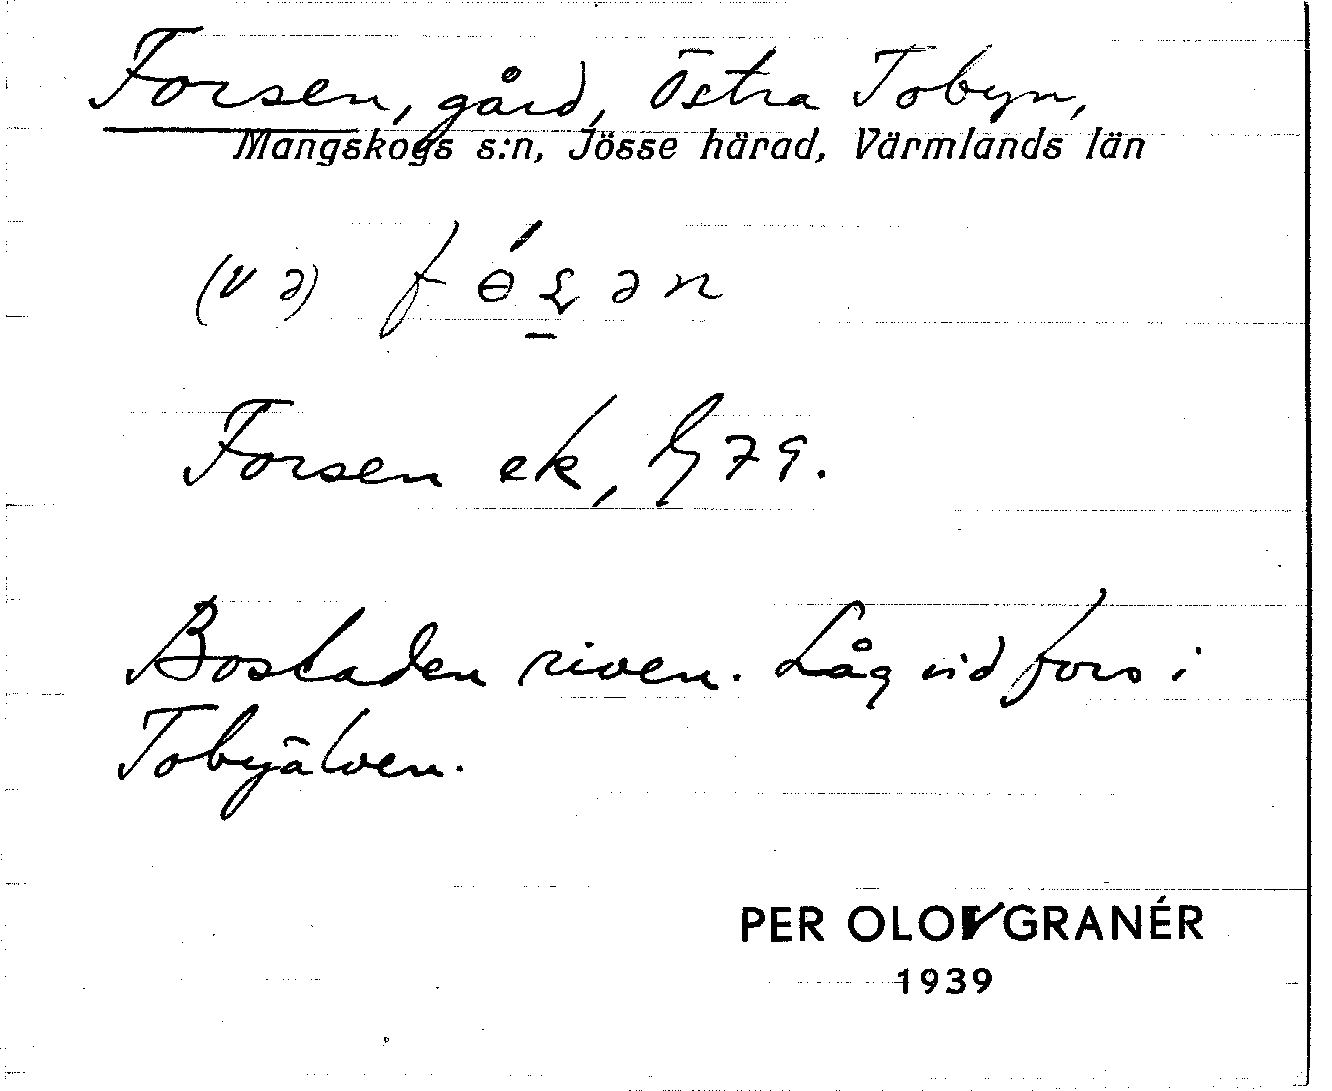 Forsen, gård, Östra Tobyn,
Mangskogs s:n, Jösse härad, Värmlands län
(v ə)
Forsen ek, 79.
Bostaden riven. Låg vid fors i
Tobyälven.
PER OLOV GRANÉR
1939